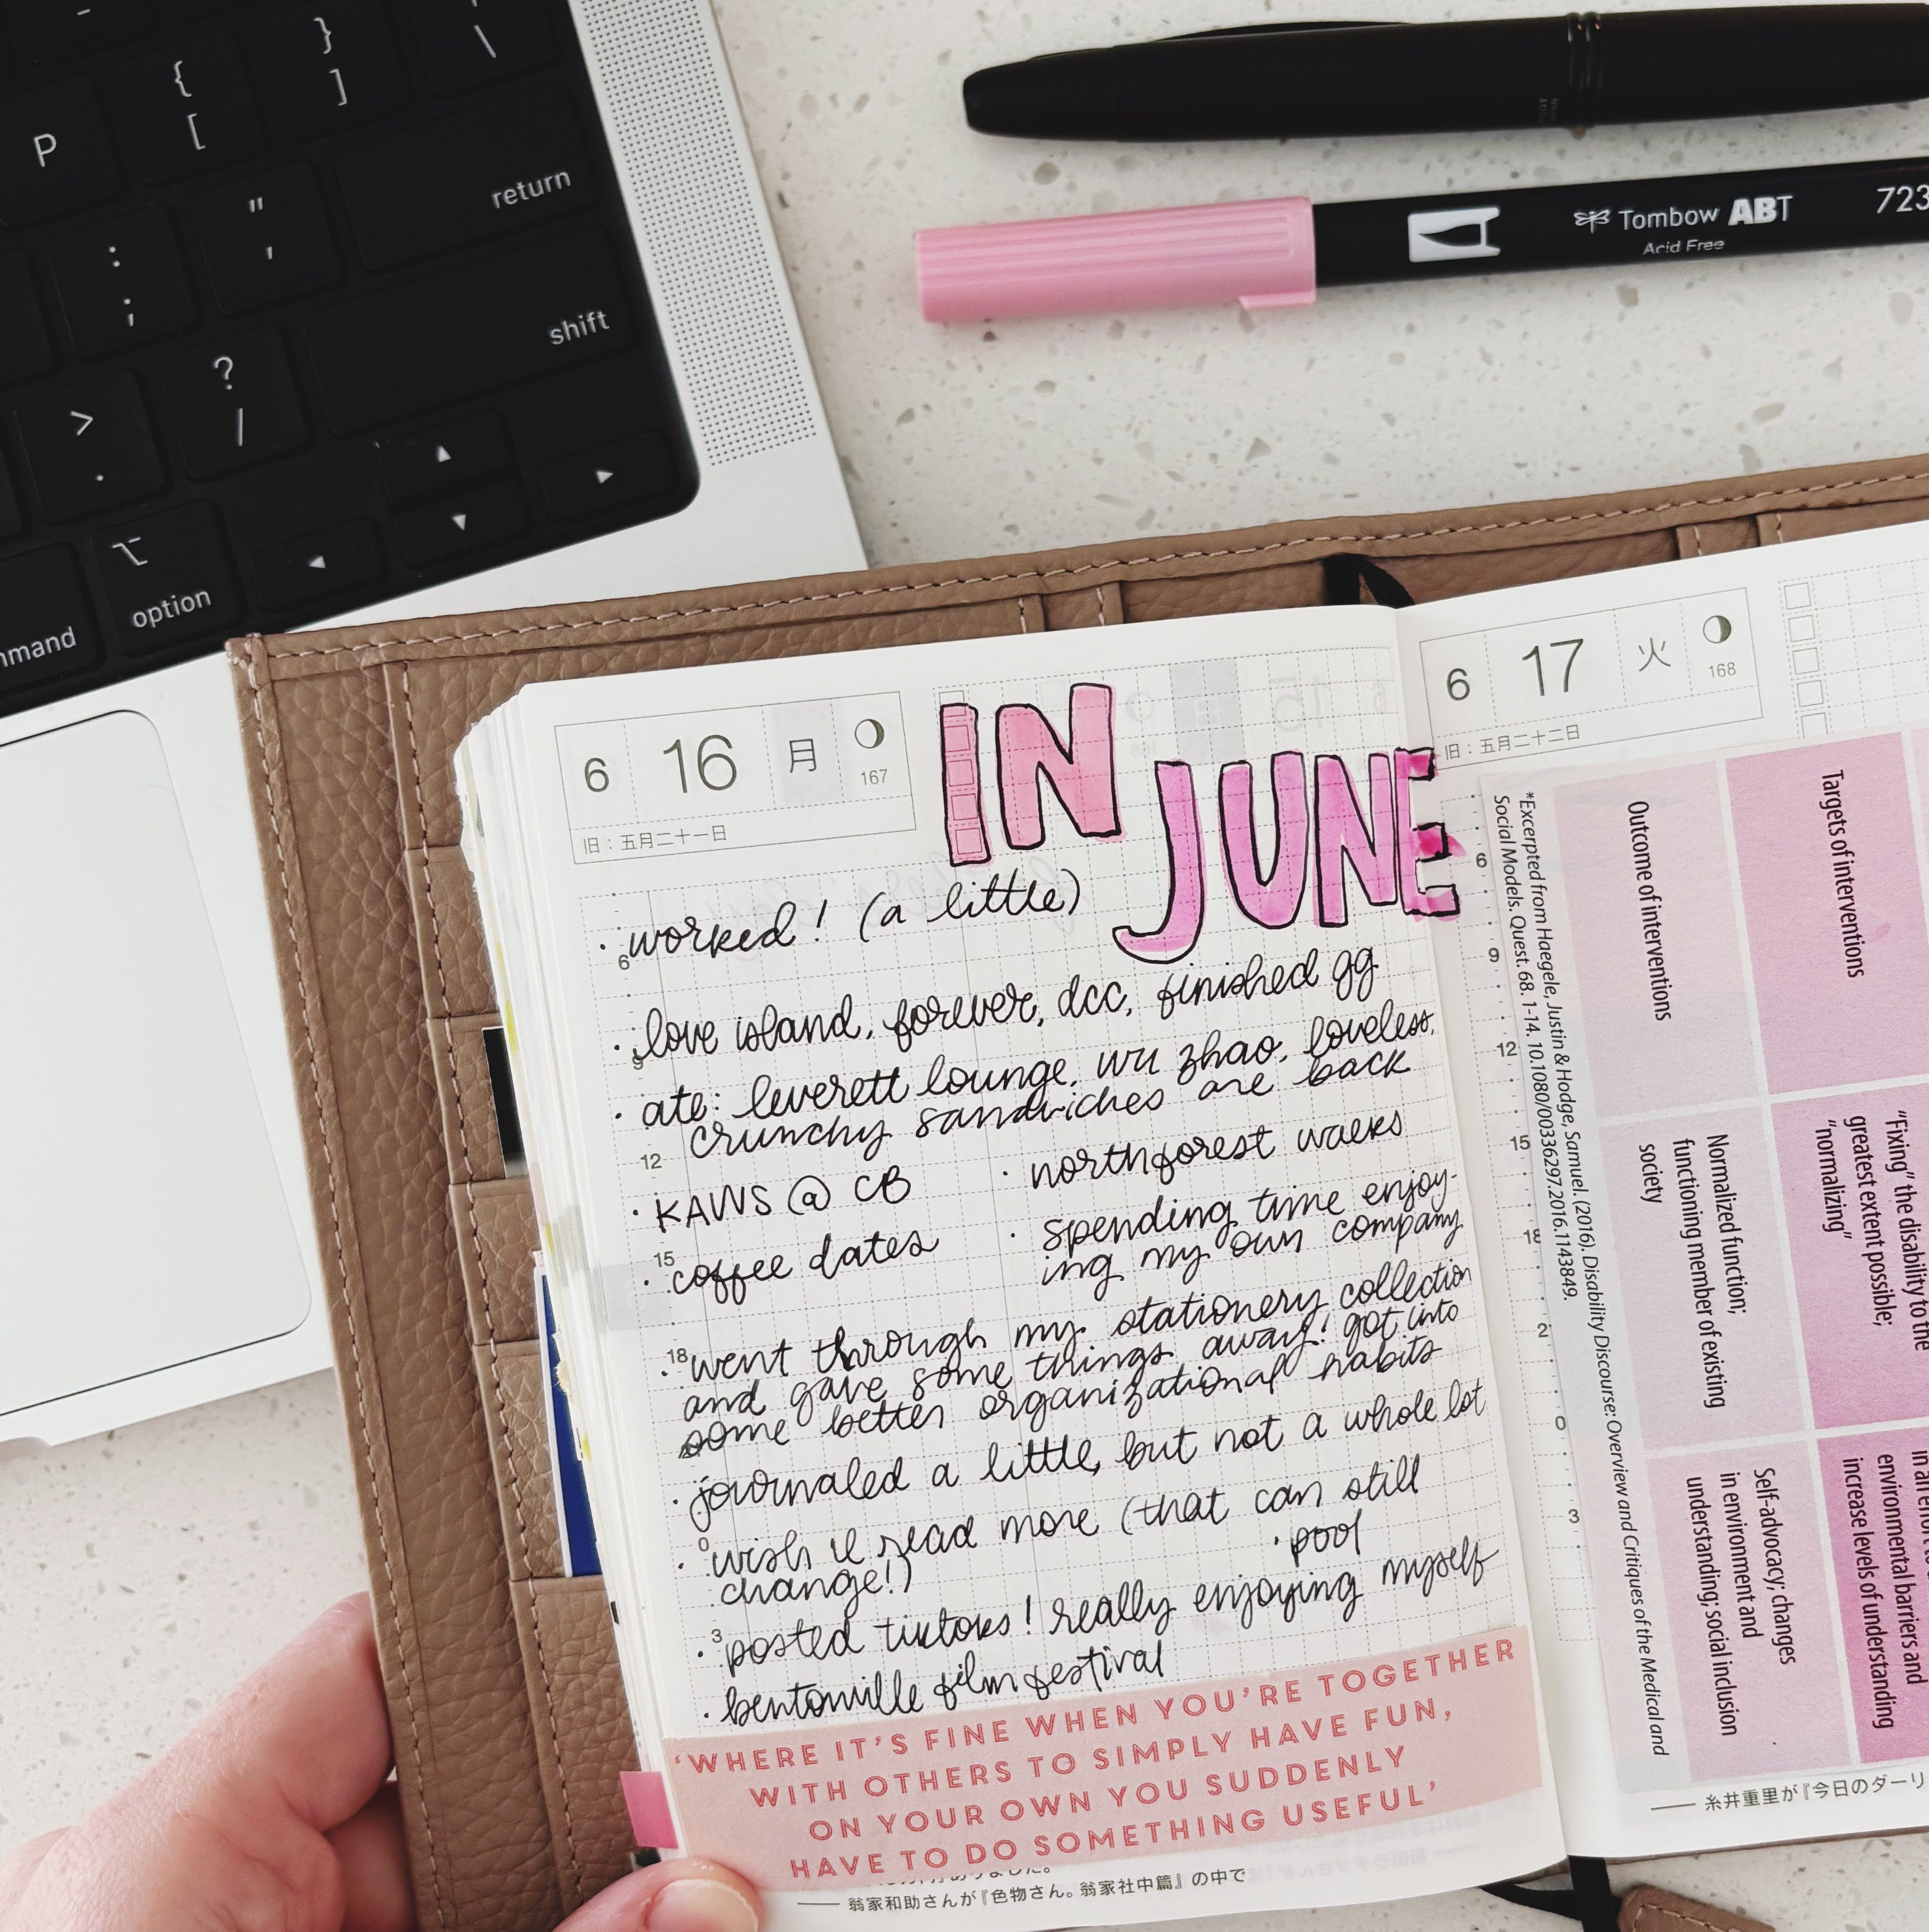 }
\
{
]
P
[
return
"
'
:
;
shift
?
/
>
.
option
mmand
Tombow ABT
723
Acid Free
6 16 月
167
旧：五月二十一日
IN
JUNE
· worked! (a little)
· love island, forever, dcc, finished gg
· ate: leverett lounge, wu zhao, loveless,
crunchy sandwiches are back
· KAWS @ CB
· northforest walks
· coffee dates
· spending time enjoy-
ing my own company
· went through my stationery collection
and gave some things away! got into
some better organizational habits
· journaled a little, but not a whole lot
· wish i'd read more (that can still
change!)
· pool
· posted tiktoks! really enjoying myself
· bentonville film festival
6
9
12
15
18
0
3
'WHERE IT'S FINE WHEN YOU'RE TOGETHER
WITH OTHERS TO SIMPLY HAVE FUN,
ON YOUR OWN YOU SUDDENLY
HAVE TO DO SOMETHING USEFUL'
—— 翁家和助さんが『色物さん。翁家社中篇』の中で
6 17 火
168
旧：五月二十二日
6
9
12
15
18
2
0
3
*Excerpted from Haegele, Justin & Hodge, Samuel. (2016). Disability Discourse: Overview and Critiques of the Medical and
Social Models. Quest. 68. 1-14. 10.1080/00336297.2016.1143849.
Outcome of interventions
Normalized function;
functioning member of existing
society
Self-advocacy; changes
in environment and
understanding; social inclusion
Targets of interventions
"Fixing" the disability to the
greatest extent possible;
"normalizing"
environmental barriers and
increase levels of understanding
—— 糸井重里が『今日のダーリ